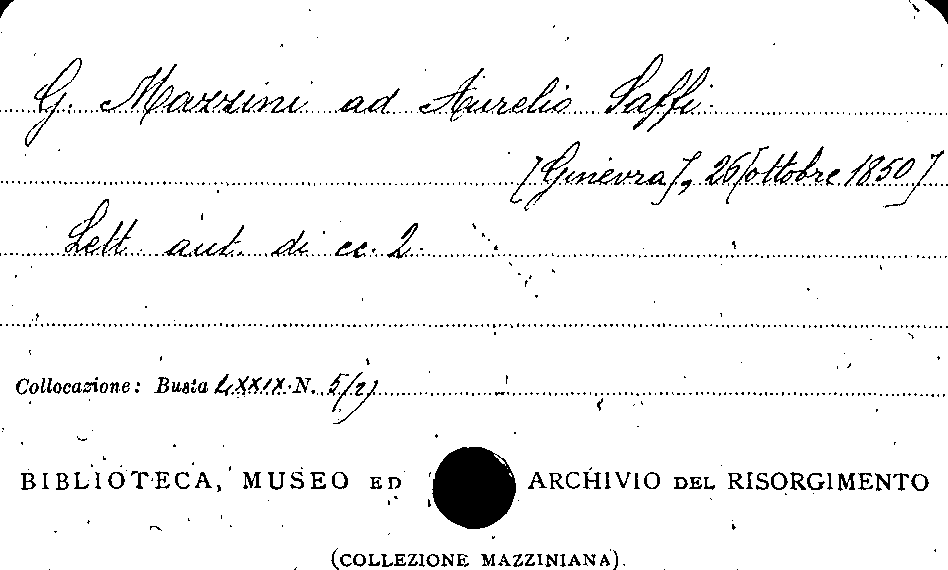 G. Mazzini ad Aurelio Saffi.
[Ginevra], 26 [ottobre 1850]
Lett. aut. di cc. 2.
Collocazione: Busta LXXIX. N. 5/2)
BIBLIOTECA, MUSEO ED ARCHIVIO DEL RISORGIMENTO
(COLLEZIONE MAZZINIANA).